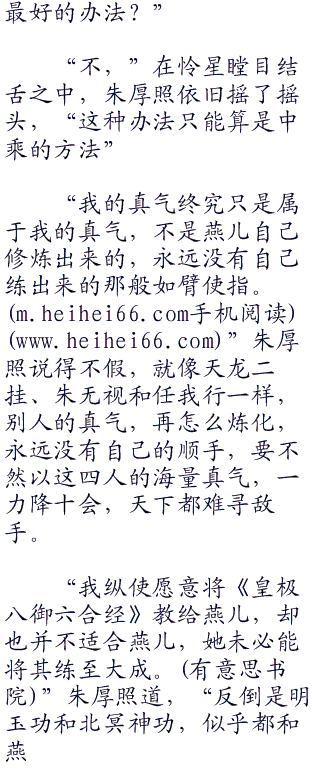 最好的办法？”
“不，”在怜星瞠目结
舌之中，朱厚照依旧摇了摇
头，“这种办法只能算是中
乘的方法”
“我的真气终究只是属
于我的真气，不是燕儿自己
修炼出来的，永远没有自己
练出来的那般如臂使指。
(m.heihei66.com手机阅读)
(www.heihei66.com)”朱厚
照说得不假，就像天龙二
挂、朱无视和任我行一样，
别人的真气，再怎么炼化，
永远没有自己的顺手，要不
然以这四人的海量真气，一
力降十会，天下都难寻敌
手。
“我纵使愿意将《皇极
八御六合经》教给燕儿，却
也并不适合燕儿，她未必能
将其练至大成。(有意思书
院)”朱厚照道，“反倒是明
玉功和北冥神功，似乎都和
燕